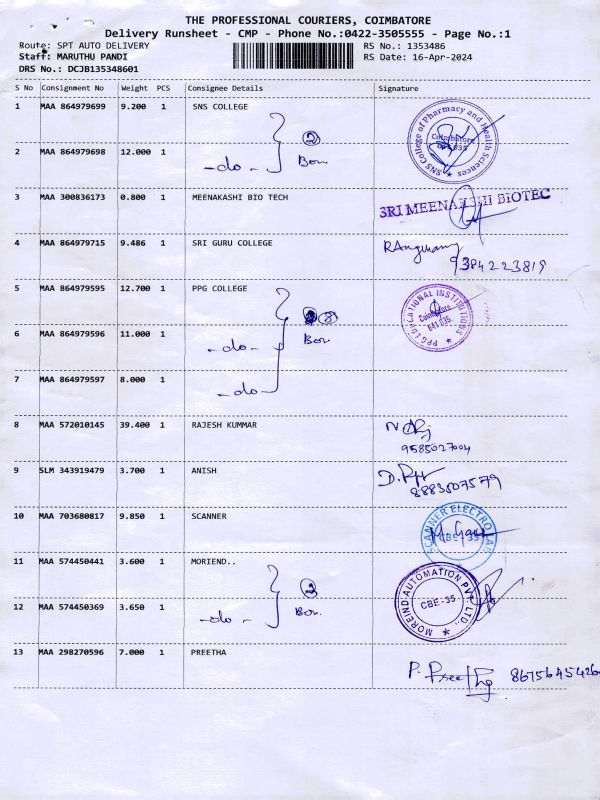 THE PROFESSIONAL COURIERS, COIMBATORE
Delivery Runsheet - CMP - Phone No.:0422-3505555 - Page No.:1
Route: SPT AUTO DELIVERY RS No.: 1353486
Staff: MARUTHU PANDI RS Date: 16-Apr-2024
DRS No.: DCJB135348601
S No Consignment No Weight PCS Consignee Details Signature
1 MAA 864979699 9.200 1 SNS COLLEGE
SNS College of Pharmacy and Health Sciences
Coimbatore
641 035
2 Box
2 MAA 864979698 12.000 1 -do-
3 MAA 300836173 0.800 1 MEENAKASHI BIO TECH
SRI MEENAKSHI BIOTEC
4 MAA 864979715 9.486 1 SRI GURU COLLEGE
9384223819
5 MAA 864979595 12.700 1 PPG COLLEGE
PPG EDUCATIONAL INSTITUTIONS
Coimbatore
641 035.
Box
6 MAA 864979596 11.000 1 -do-
7 MAA 864979597 8.000 1 -do-
8 MAA 572010145 39.400 1 RAJESH KUMMAR
9585027004
9 SLM 343919479 3.700 1 ANISH
8883507579
10 MAA 703680817 9.850 1 SCANNER
SCANNER ELECTRO
CBE-35
11 MAA 574450441 3.600 1 MORIEND..
MOREIND AUTOMATION PVT. LTD.,
CBE-35
2 Box
12 MAA 574450369 3.650 1 -do-
13 MAA 298270596 7.000 1 PREETHA
P. Pree